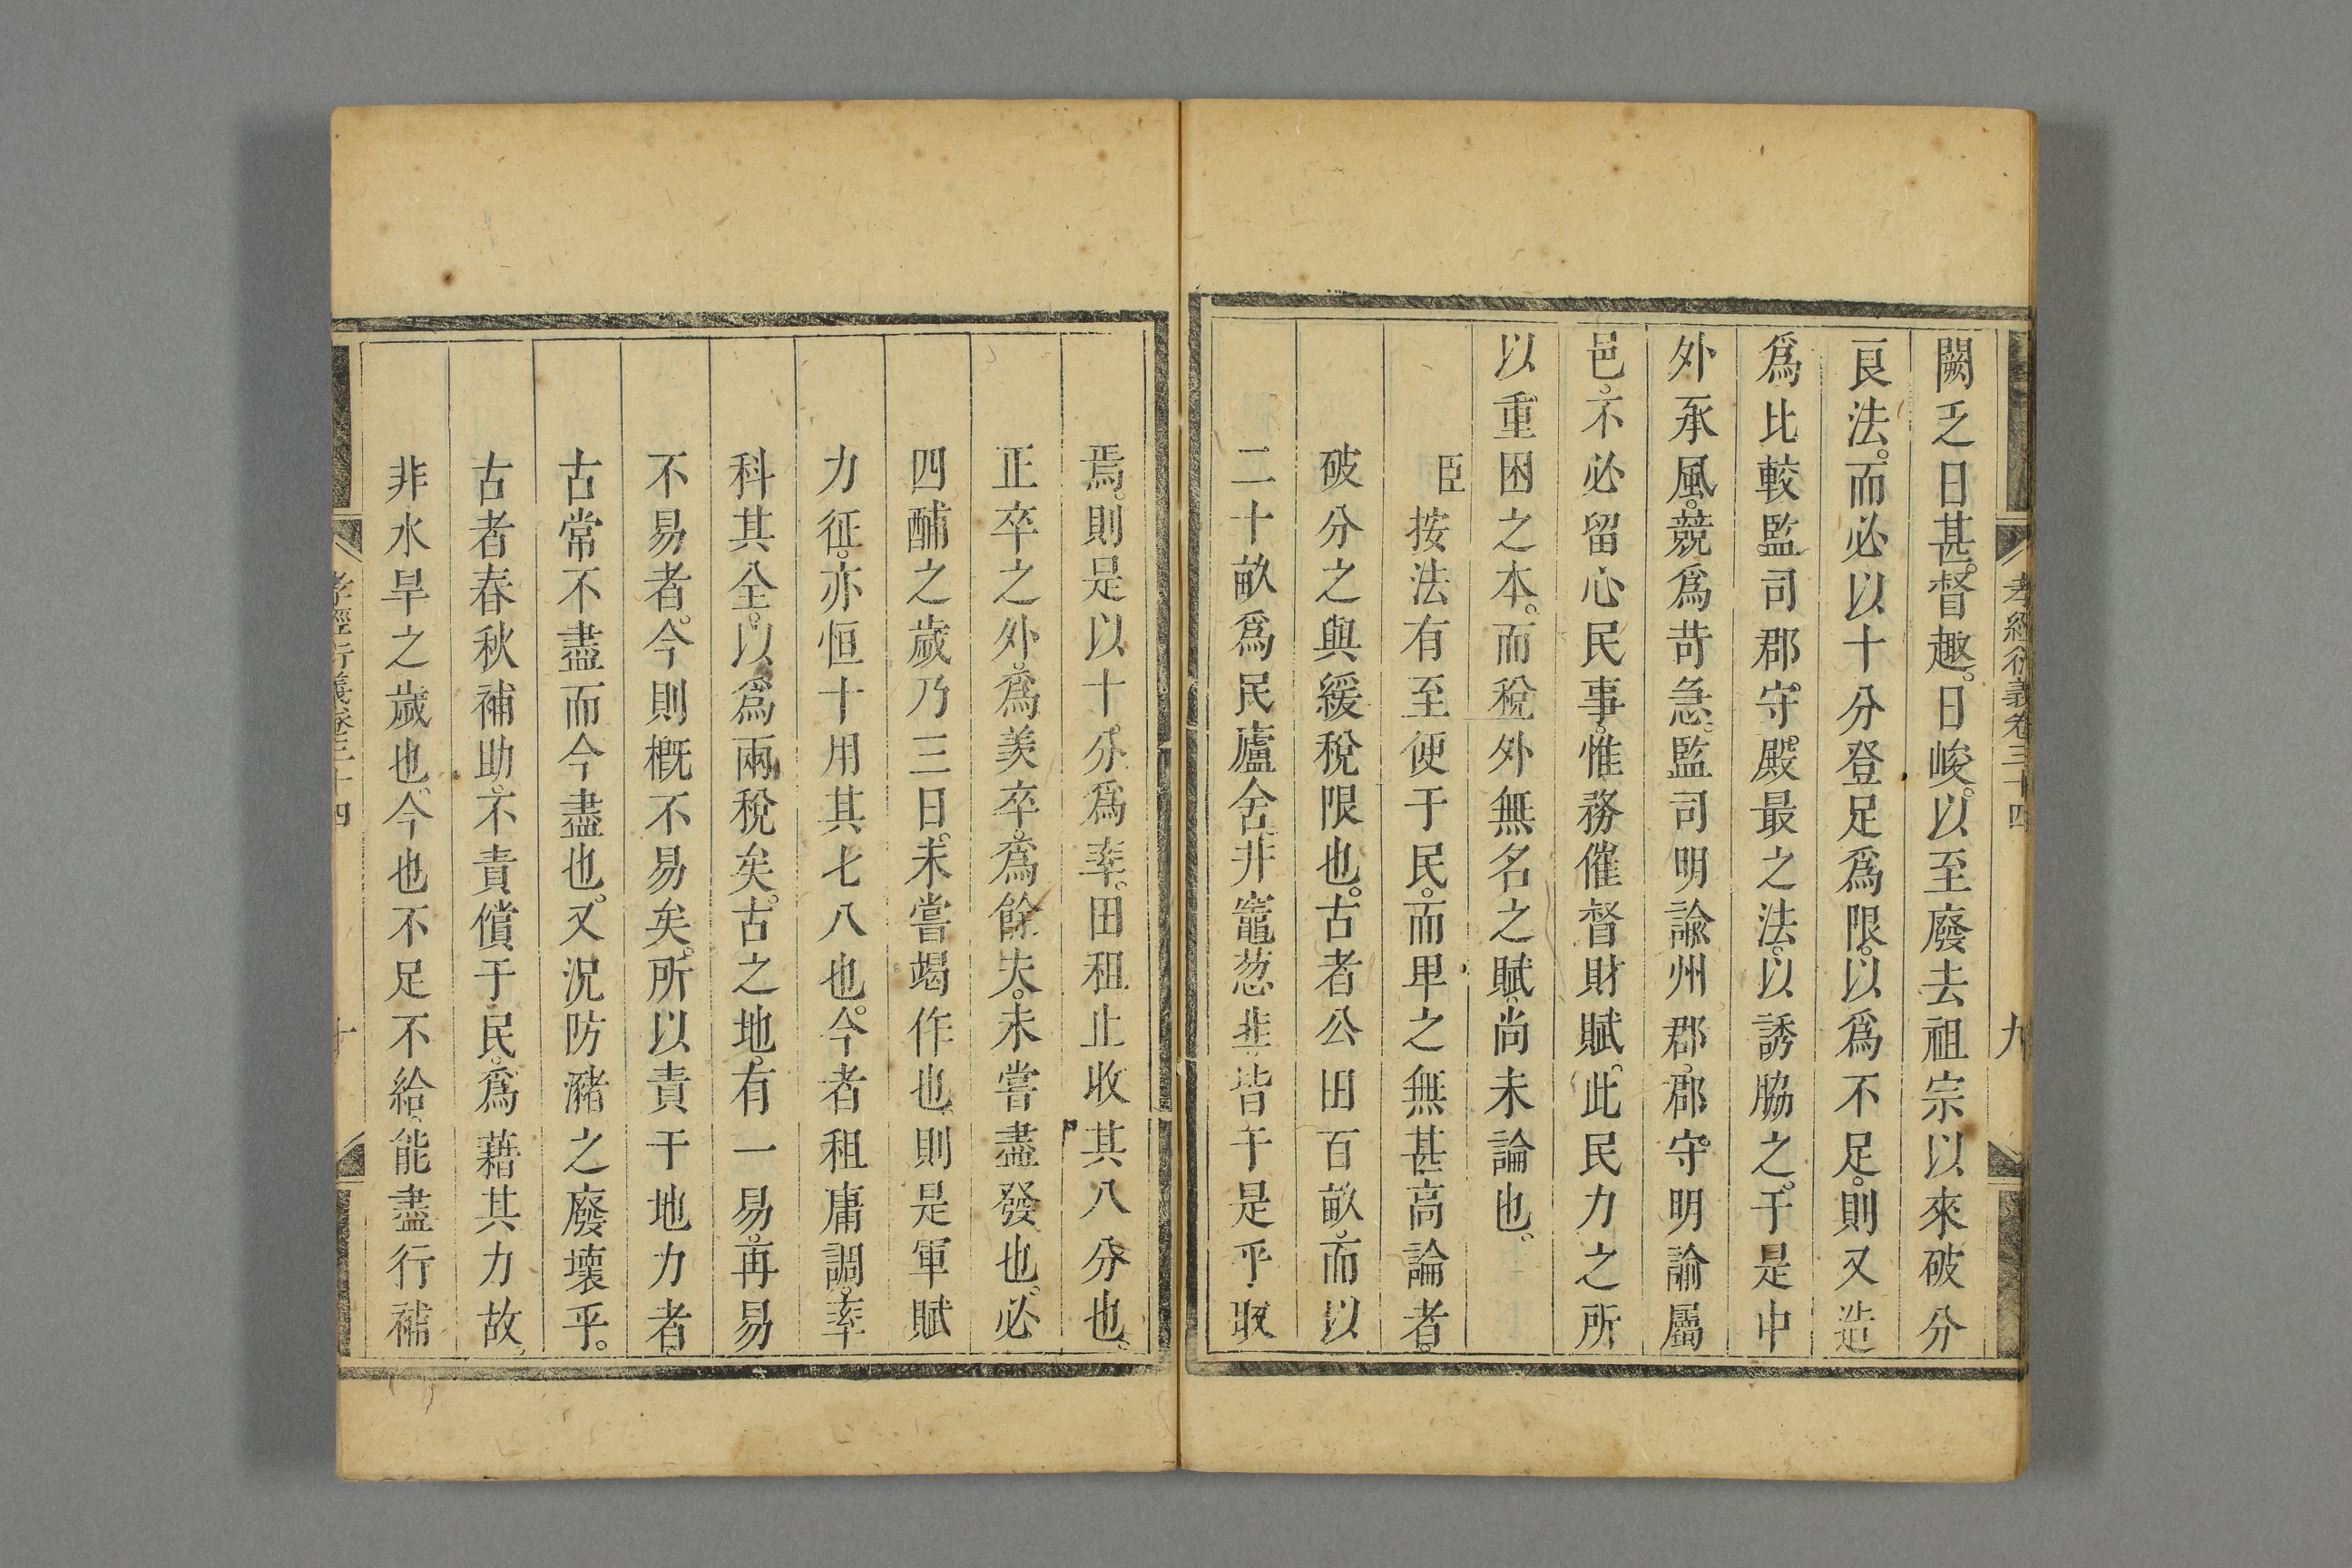 孝經衍義卷三十四 九
闕乏日甚。督趣。日峻。以至廢去祖宗以來破分
良法。而必以十分登足爲限。以爲不足。則又造
爲比較監司郡守。殿最之法。以誘脇之。于是中
外承風。競爲苛急。監司明諭州郡。郡守明諭屬
邑。不必留心民事。惟務催督財賦。此民力之所
以重困之本。而稅外無名之賦。尚未論也。
臣按法有至便于民。而卑之無甚高論者。
破分之與緩稅限也。古者公田百畝。而以
二十畝爲民廬舍。井竈葱韭皆于是乎取
焉。則是以十分爲率。田租止收其八分也。
正卒之外。爲羨卒。爲餘夫。未嘗盡發也。必
四鬴之歲乃三日。未嘗竭作也。則是軍賦
力征。亦恒十用其七八也。今者租庸調。率
科其全。以爲兩稅矣。古之地。有一易。再易
不易者。今則概不易矣。所以責于地力者。
古常不盡而今盡也。又況防瀦之廢壞乎。
古者春秋補助。不責償于民。爲藉其力故。
非水旱之歲也。今也不足不給。能盡行補
孝經衍義卷三十四 十